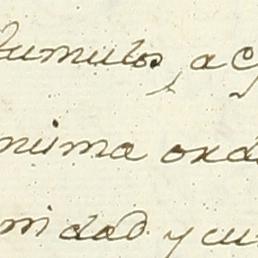 tumulos, a C
nisma orde
midad y cu